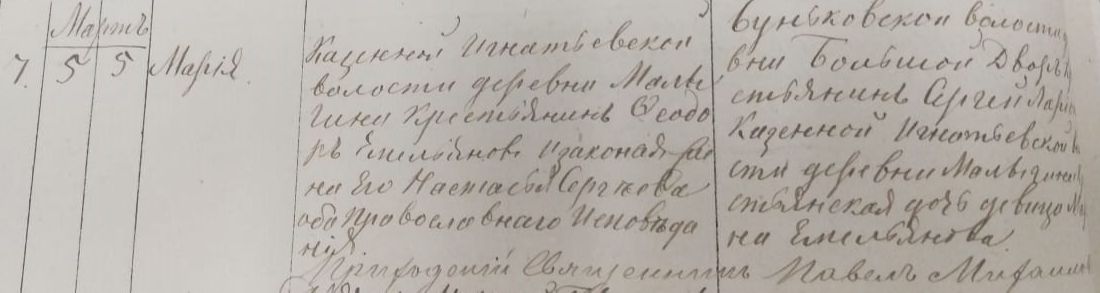 Мартъ
7. 5 5 Марія.
Казенной Игнатьевской
волости деревни Малы
гина крестьянинъ Ѳеодо
ръ Емельяновъ и законая же
на Его Настасья Сергѣева
оба православнаго Исповѣда
нія
Буньковской волости
вни Большой Дворъ
стьянинъ Сергей
Казенной Игнатьевской
сти деревни Малыгина
стьянская дочь девица
на Емельянова.
Приходский Священникъ Павелъ